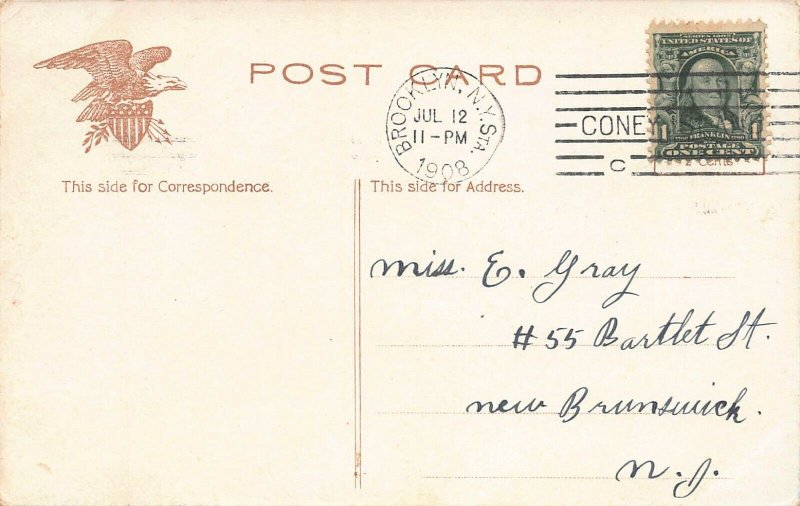 POST CARD
BROOKLYN, N.Y. STA.
JUL 12
11-PM
1908
CONEY
C
SERIES 1902
UNITED STATES OF
AMERICA
1 FRANKLIN 1
POSTAGE
ONE CENT
2 Cents
This side for Correspondence.
This side for Address.
Miss. E. Gray
#55 Bartlet St.
New Brunswick.
N. J.